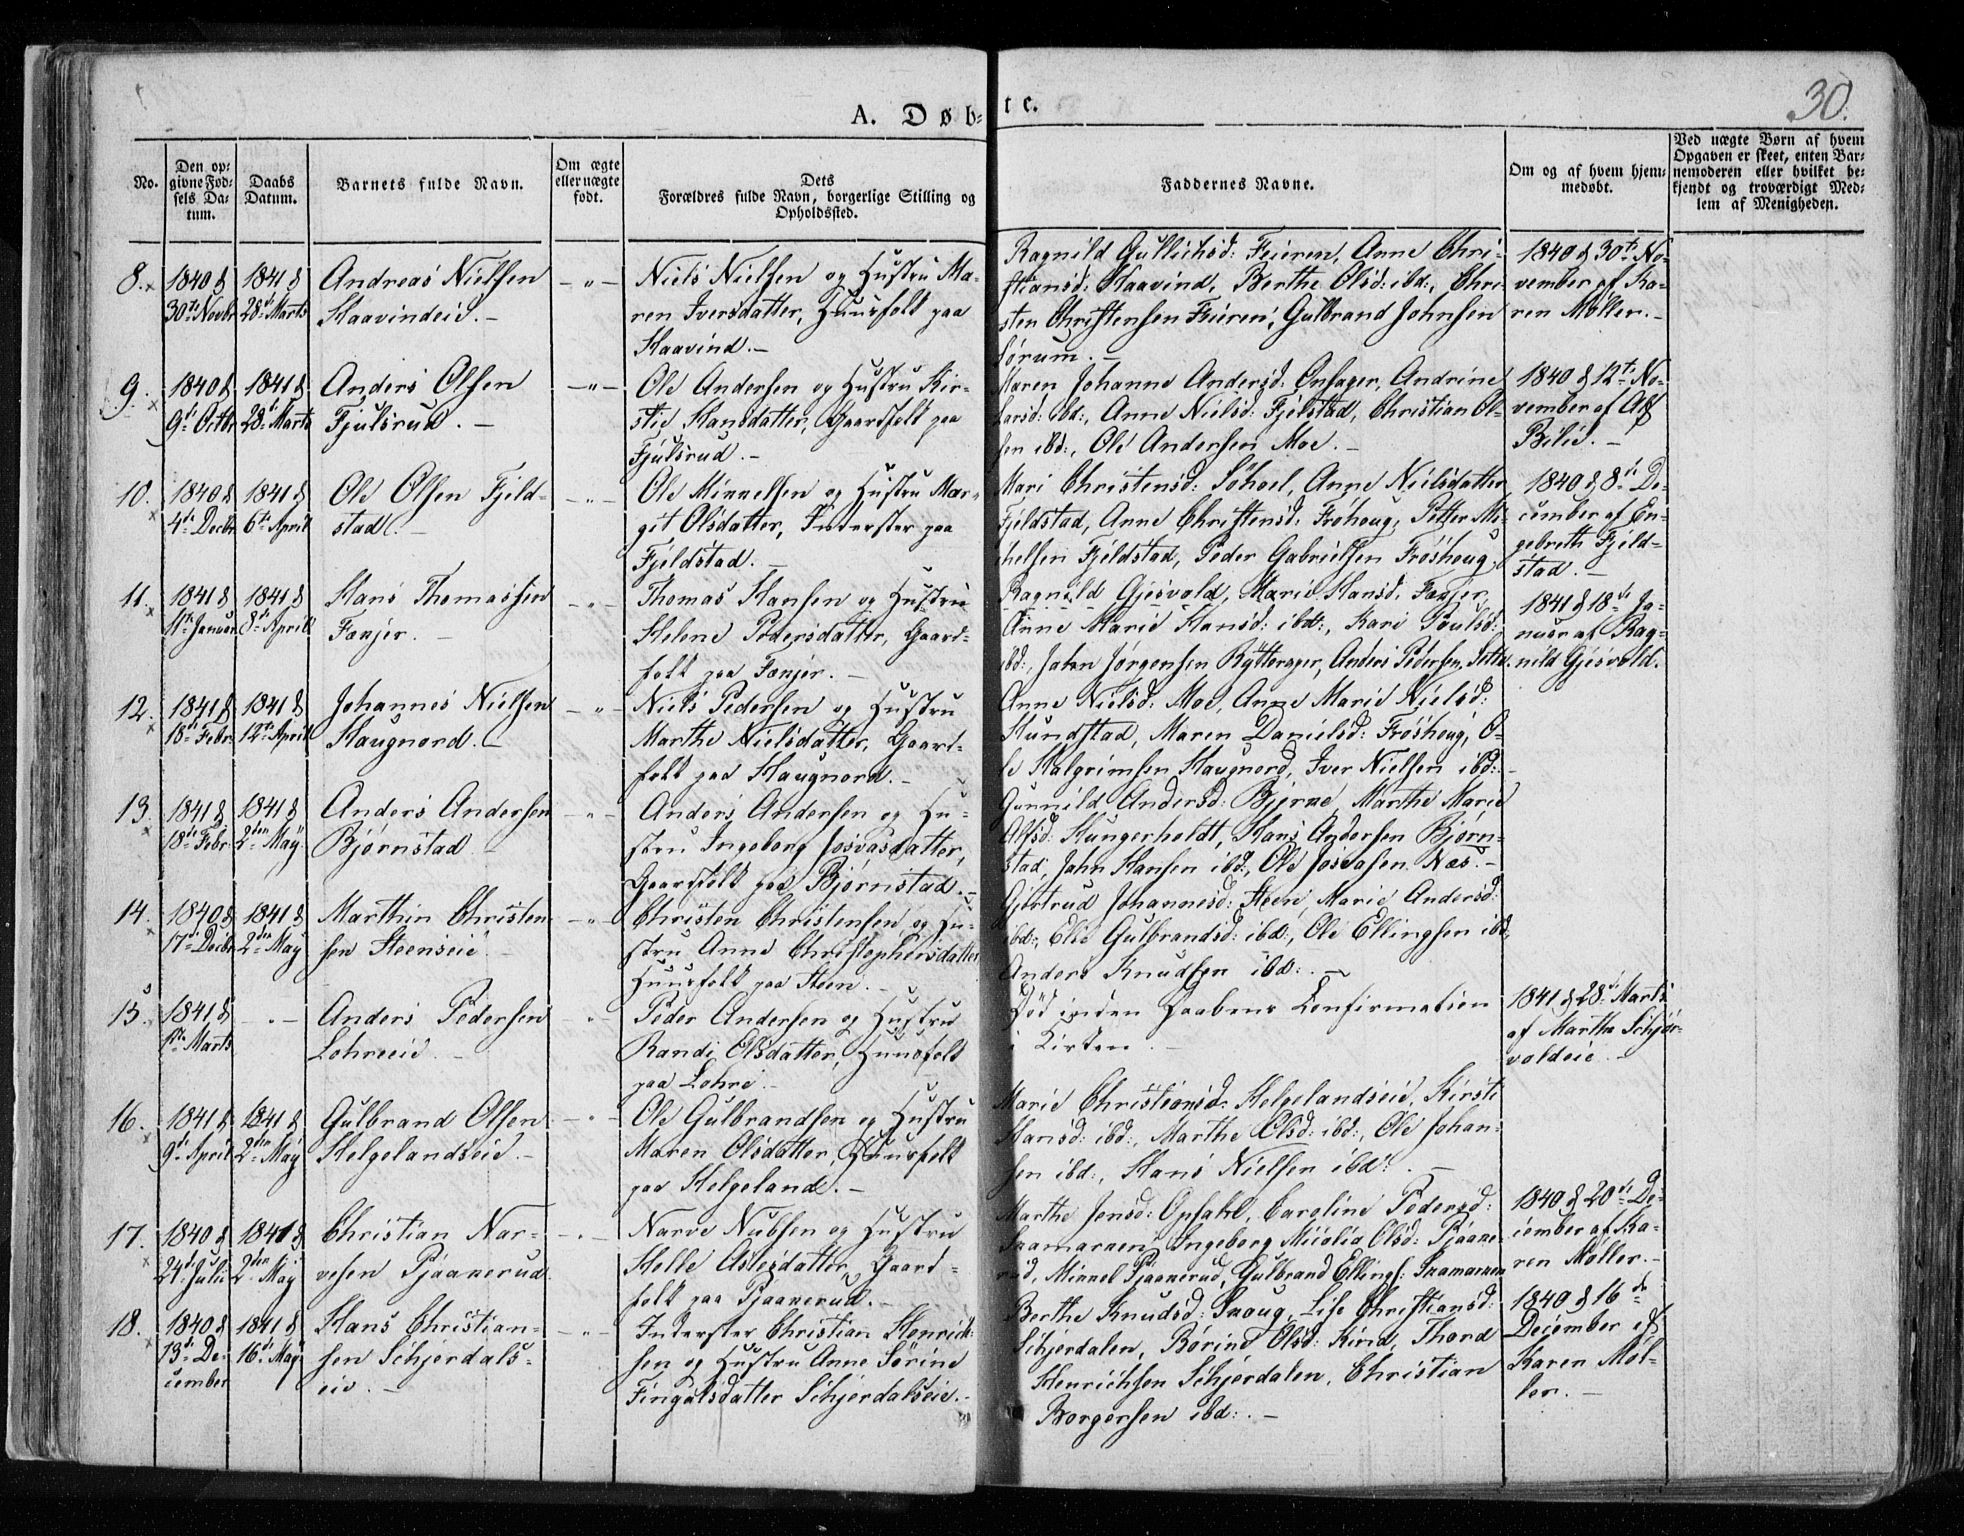 30.
A. Døb=te.
No.
Den op=
givne Fød=
sels Da=
tum.
Daabs
Datum.
Barnets fulde Navn.
Om ægte
eller uægte
født.
Dets
Forældres fulde Navn, borgerlige Stilling og
Opholdssted.
Faddernes Navne.
Om og af hvem hjem=
medøbt.
Ved uægte Børn af hvem
Opgaven er skeet, enten Bar=
nemoderen eller hvilket be=
kjendt og troværdigt Med=
lem af Menigheden.
8.
1840 d
30te Novbr
1841 d
28de Marts
Andreas Nielsen
Haavindeie. -
- " -
Niels Nielsen og Hustru Ma-
ren Iversdatter, Huusfolk paa
Haavind. -
Ragnild Gullichsd: Feieren, Anne Chri-
stiansd: Haavind, Berthe Olsd: ibd:, Chri-
sten Christensen Feieren, Gulbrand Johnsen
Sørum. -
1840 d 30te No-
vember af Ka-
ren Møller. -
9.
1840 d
9de Octbr
1841 d
28de Marts
Anders Olsen
Fjulsrud. -
- " -
Ole Andersen og Hustru Kir-
stie Hansdatter, Gaardfolk paa
Fjulsrud. -
Maren Johanne Andersd: Onsager, Andrine
Larsd: ibd:, Anne Nielsd: Fjelstad, Christian Ol-
sen ibd:, Ole Andersen Moe. -
1840 d 12te No-
vember af Alf
Bilie. -
10.
1840 d
4de Decbr
1841 d
6te April
Ole Olsen Fjeld-
stad. -
- " -
Ole Mikkelsen og Hustru Mar-
git Olsdatter, Inderster paa
Fjeldstad. -
Mari Christensd: Sohoel, Anne Nielsdatter
Fjeldstad, Anne Christensd: Frøhoug, Petter Mi-
chelsen Fjeldstad, Peder Gabrielsen Frøshoug,
1840 d 8de De-
cember af En-
gebreth Fjeld-
stad. -
11.
1841 d
11te Januar
1841 d
8de April
Hans Thomassen
Fønjer. -
- " -
Thomas Hansen og Hustru
Helene Pedersdatter, Gaard-
folk paa Fønjer. -
Ragnild Gjesvold, Marie Hansd: Fønjer,
Anne Marie Hansd: ibd:, Kari Poulsd:
ibd:, John Jørgensen Rytterager, Anders Pedersen,
1841 d 18de Ja-
nuar af Rag-
nild Gjesvold.
12.
1841 d
18de Febr
1841 d
12te April
Johannes Nielsen
Haugnord. -
- " -
Niels Pedersen og Hustru
Marthe Nielsdatter, Gaard-
folk paa Haugnord. -
Anne Nielsd: Moe, Anne Marie Nielsd:
Hundstad, Maren Danielsd: Frøshoug, O-
le Halgrimsen Haugnord, Iver Nielsen ibd:. -
13.
1841 d
18de Febr
1841 d
2den May
Anders Andersen
Bjørnstad -
- " -
Anders Andersen og Hu-
stru Ingeborg Josvasdatter,
Gaardfolk paa Bjørnstad. -
Gunnild Andersd: Bjerke, Marthe Marie
Alfsd: Hungerholdt, Hans Andersen Bjørn-
stad, John Hansen ibd:, Ole Josvasen Næs. -
14.
1840 d
17de Decbr
1841 d
2den May
Marthin Christen
sen Steenseie. -
- " -
Christen Christensen og Hu-
stru Anne Christophersdatter
Huusfolk paa Steen. -
Gjertrud Johannesd: Steen, Marie Andersd:
ibd:, Else Gulbrandsd: ibd:, Ole Ellingsen ibd,
Anders Knudsen ibd:. -
15.
1841 d
1ste Marts
- " -
Anders Pedersen
Lohreeie. -
- " -
Peder Andersen og Hustru
Randi Olsdatter, Huusfolk
paa Lohre. -
Død inden Daabens Confirmation
i Kirken. -
1841 d 28de Marts
af Marthe Schjør-
voldeie. -
16.
1841 d
9de April
1841 d
2den May
Gulbrand Olsen
Helgelandseie. -
- " -
Ole Gulbrandsen og Hustru
Maren Olsdatter, Huusfolk
paa Helgeland. -
Marie Christiansd: Helgelandseie, Kirsti
Hansd: ibd:, Marthe Olsd: ibd:, Ole Johan-
sen ibd:, Hans Nielsen ibd:. -
17.
1840 d
24de Julii
1841 d
2den May
Christian Nar-
vesen Pjaakerud.
- " -
Narve Nubsen og Hustru
Helle Aslesdatter, Gaard-
folk paa Pjaakerud. -
Marthe Jensd: Opsahl, Caroline Pedersd:
Ingeborg Micolia Olsd: Pjaake-
rud, Mikkel Pjaakerud, Gulbrand Ellings:
1840 d 20de De-
cember af Ka-
ren Møller. -
18.
1840 d
13de De-
cember
1841 d
16de May
Hans Christian-
sen Schjerdals-
eie. -
- " -
Inderster Christian Henrich-
sen og Hustru Anne Sørine
Fingalsdatter Schjerdalseie. -
Berthe Knudsd: Lise Christiansd:
Schjerdalen, Børine Olsd: Thord
Henrichsen Schjerdalen, Christian
Borgersen ibd:. -
1840 d 16de
December af
Karen Møl-
ler. -